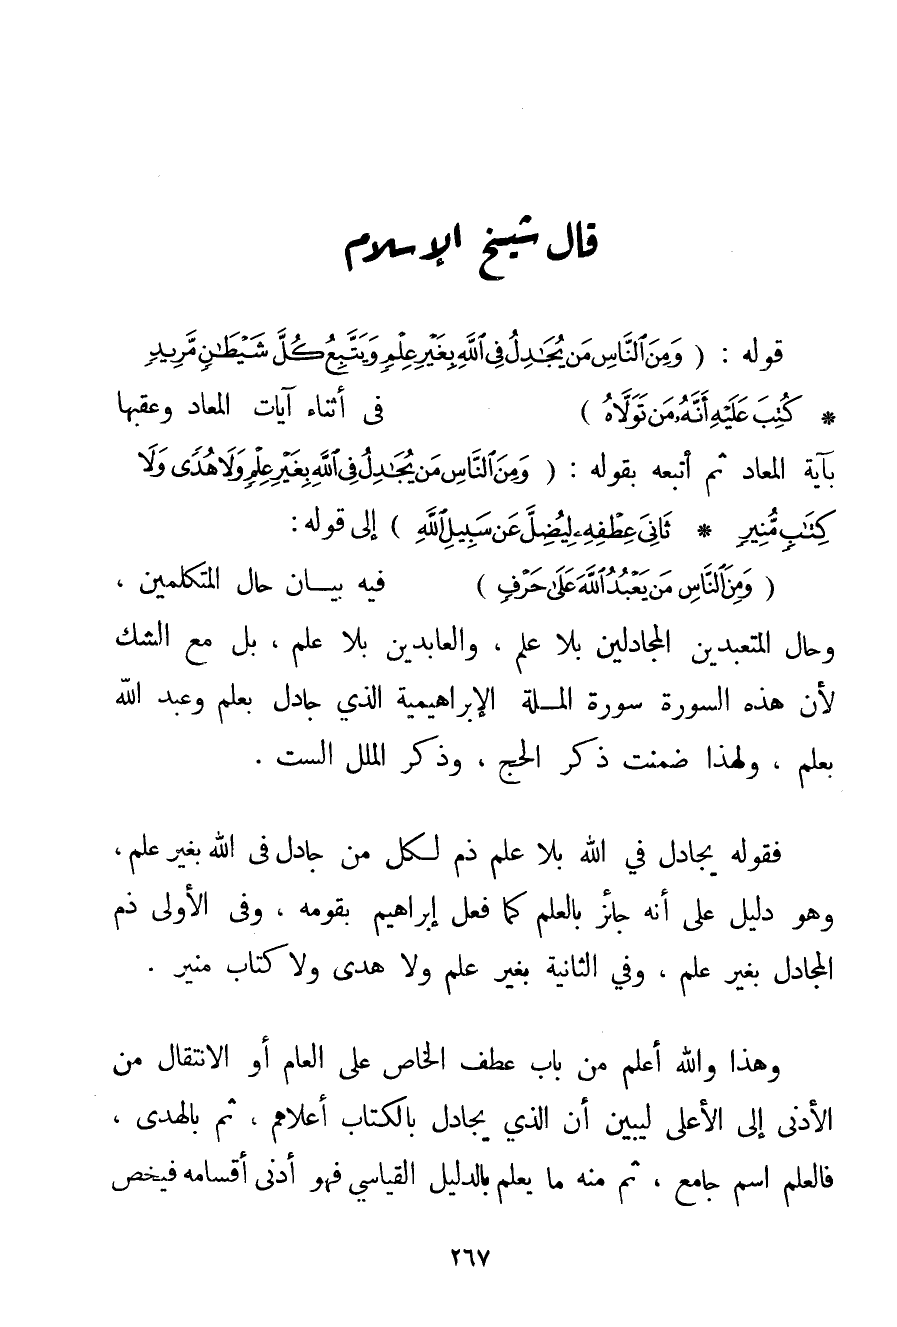 قال شيخ الإسلام
قوله : ( وَمِنَ ٱلنَّاسِ مَن يُجَٰدِلُ فِى ٱللَّهِ بِغَيْرِ عِلْمٍ وَيَتَّبِعُ كُلَّ شَيْطَٰنٍ مَّرِيدٍ
* كُتِبَ عَلَيْهِ أَنَّهُۥ مَن تَوَلَّاهُ ) فى أثناء آيات المعاد وعقبها
بآية المعاد ثم أتبعه بقوله : ( وَمِنَ ٱلنَّاسِ مَن يُجَٰدِلُ فِى ٱللَّهِ بِغَيْرِ عِلْمٍ وَلَا هُدًى وَلَا
كِتَٰبٍ مُّنِيرٍ * ثَانِىَ عِطْفِهِۦ لِيُضِلَّ عَن سَبِيلِ ٱللَّهِ ) إلى قوله :
( وَمِنَ ٱلنَّاسِ مَن يَعْبُدُ ٱللَّهَ عَلَىٰ حَرْفٍ ) فيه بيــان حال المتكلمين ،
وحال المتعبدين المجادلين بلا علم ، والعابدين بلا علم ، بل مع الشك
لأن هذه السورة سورة المــلة الإبراهيمية الذي جادل بعلم وعبد الله
بعلم ، ولهذا ضمنت ذكر الحج ، وذكر الملل الست .
فقوله يجادل في الله بلا علم ذم لـكل من جادل فى الله بغير علم ،
وهو دليل على أنه جائز بالعلم كما فعل إبراهيم بقومه ، وفى الأولى ذم
المجادل بغير علم ، وفي الثانية بغير علم ولا هدى ولا كتاب منير .
وهذا والله أعلم من باب عطف الخاص على العام أو الانتقال من
الأدنى إلى الأعلى ليبين أن الذي يجادل بالكتاب أعلاهم ، ثم بالهدى ،
فالعلم اسم جامع ، ثم منه ما يعلم بالدليل القياسي فهو أدنى أقسامه فيخص
٢٦٧